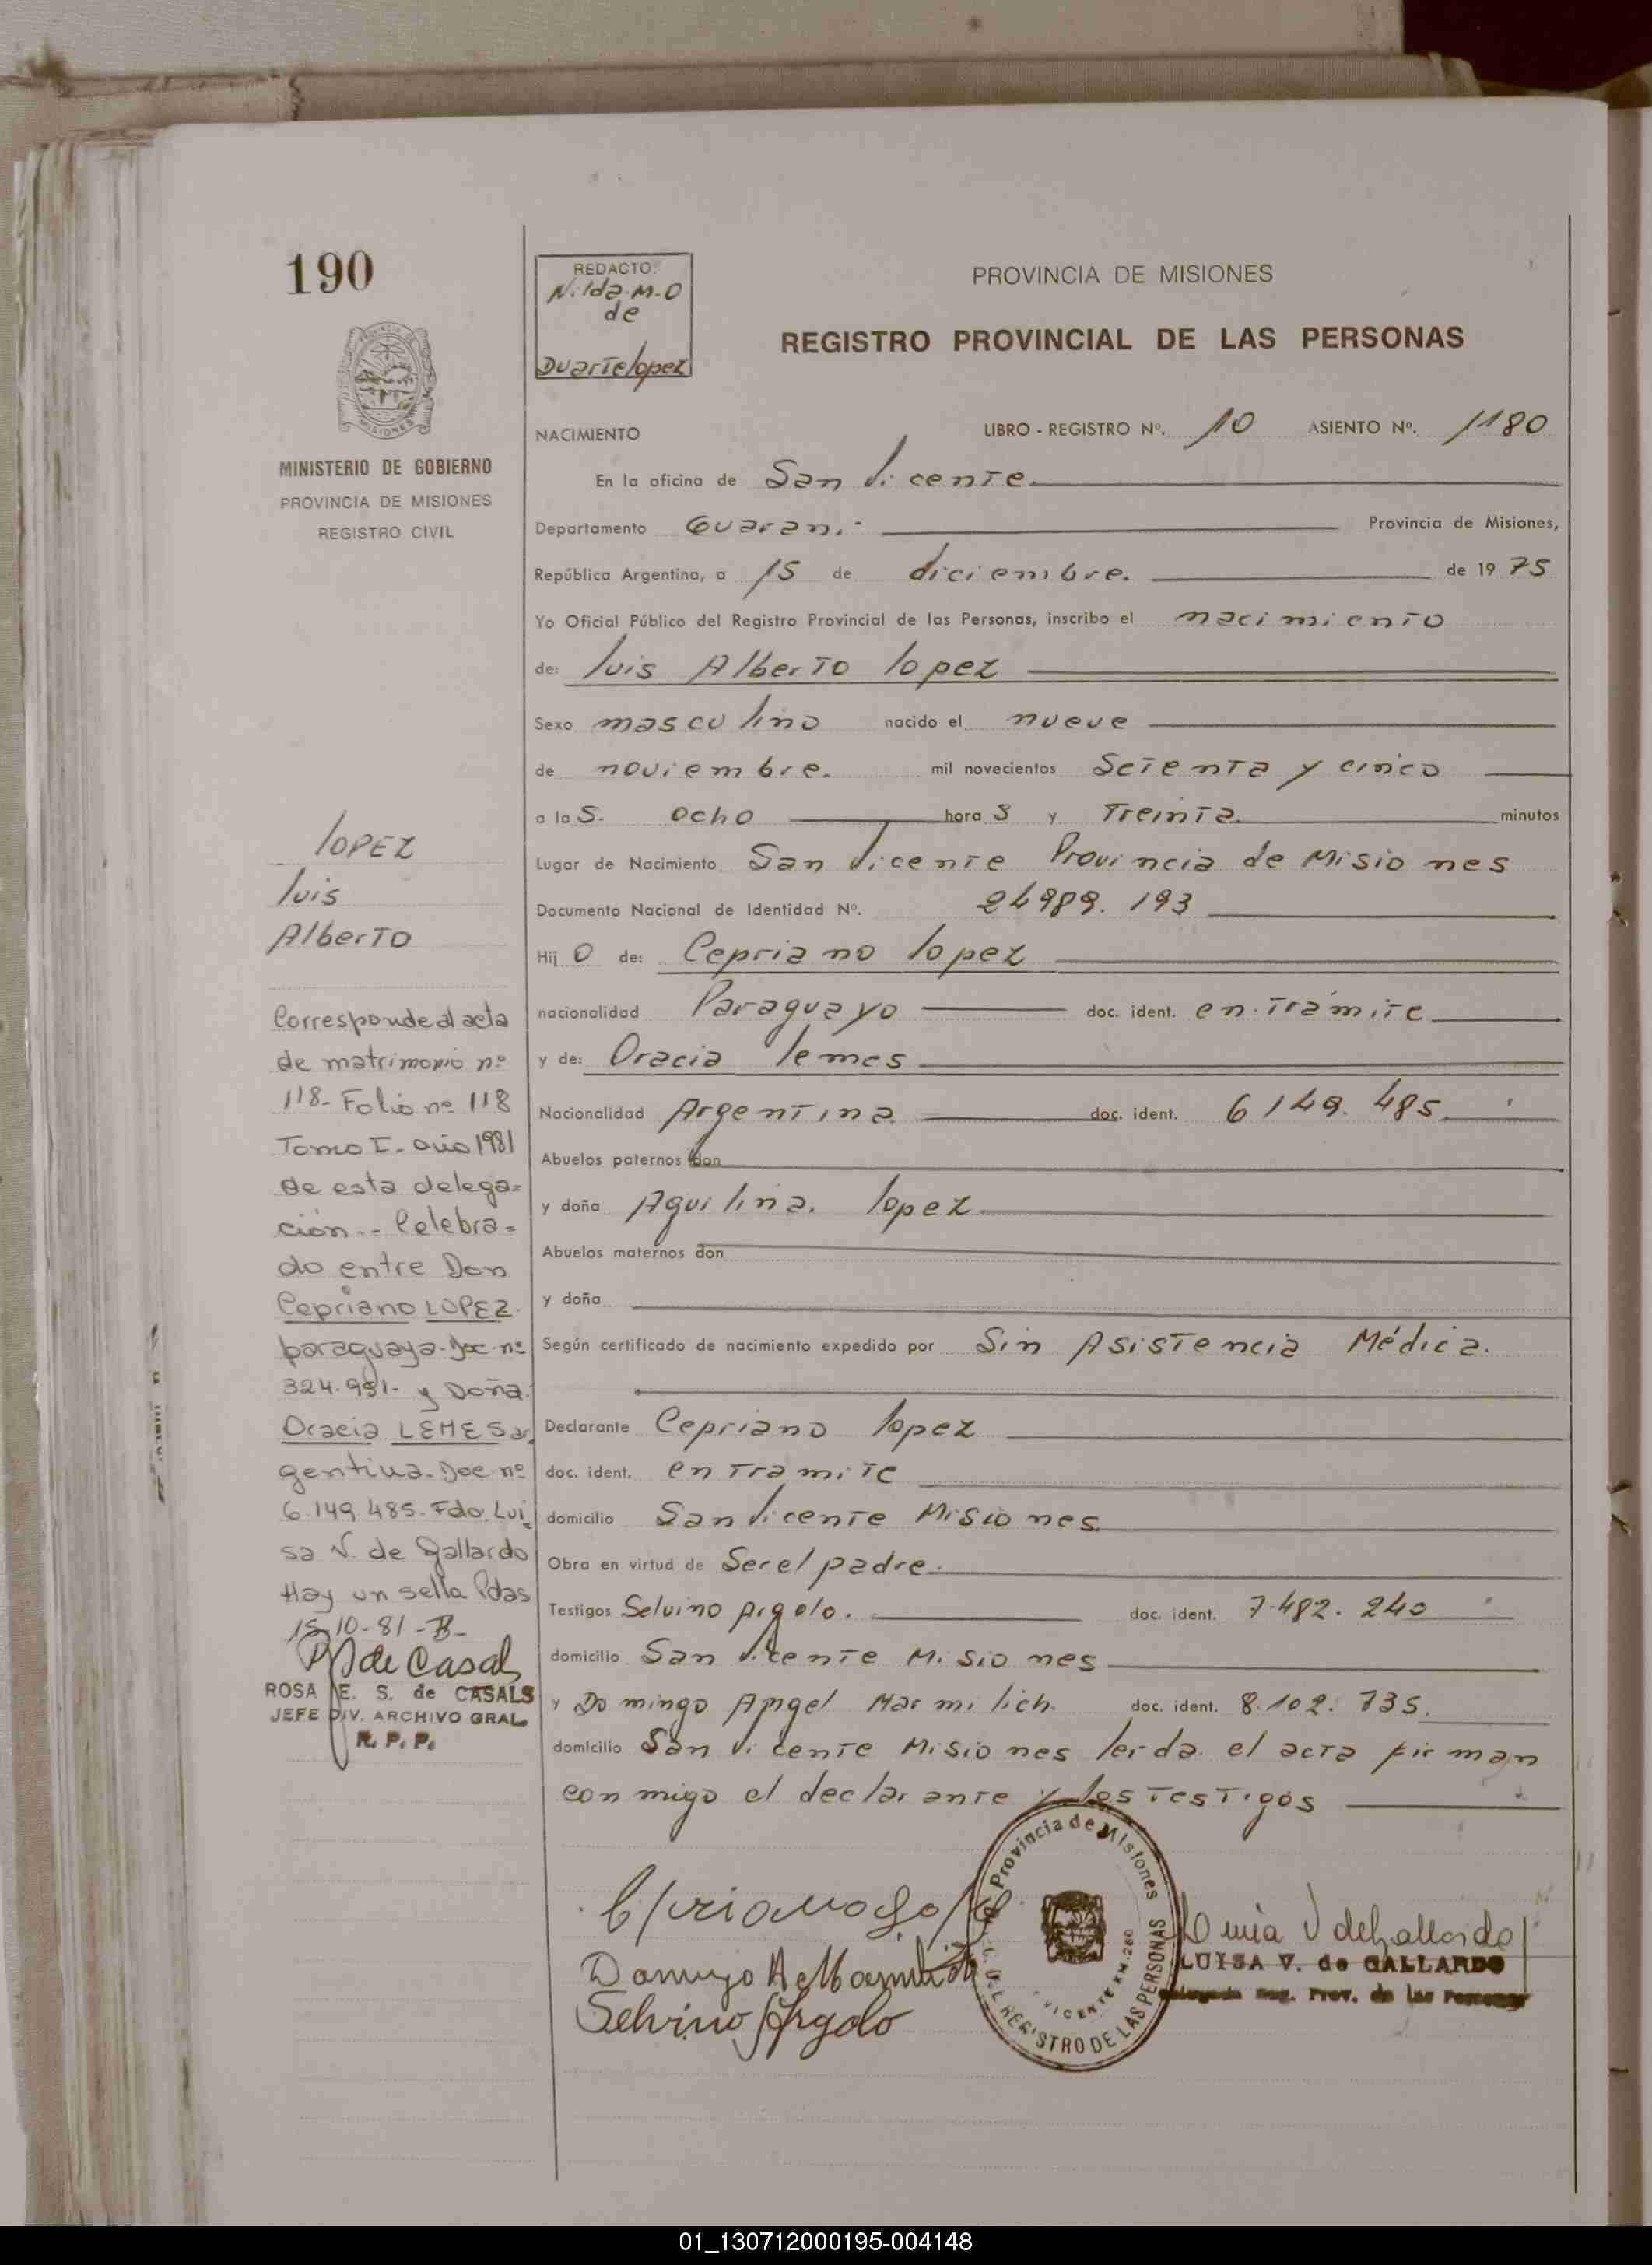 190
MINISTERIO DE GOBIERNO
PROVINCIA DE MISIONES
REGISTRO CIVIL
LOPEZ
Luis
Alberto
Corresponde al acta
de matrimonio nº
118- Folio nº 118
Tomo I- año 1981
de esta delega=
ción.- Celebra=
do entre Don
Cepriano LOPEZ.
paraguaya- Doc- nº
324.951- y Doña.
Oracia LEMES ar
gentina- Doc nº
6.149.485- Fdo. Lui
sa V. de Gallardo
Hay un sello Pdas
15-10-81 -B-
de Casals
ROSA E. S. de CASALS
JEFE DIV. ARCHIVO GRAL.
R. P. P.
REDACTO:
Nilda M.O
de
Duarte lopez
PROVINCIA DE MISIONES
REGISTRO PROVINCIAL DE LAS PERSONAS
NACIMIENTO LIBRO - REGISTRO Nº. 10 ASIENTO Nº. 1180
En la oficina de San Vicente.
Departamento Guaraní- Provincia de Misiones,
República Argentina, a 15 de diciembre. de 19 75
Yo Oficial Público del Registro Provincial de las Personas, inscribo el nacimiento
de: Luis Alberto Lopez
Sexo masculino nacido el nueve
de noviembre. mil novecientos Setenta y cinco
a la S. ocho hora S y Treinta. minutos
Lugar de Nacimiento San Vicente Provincia de Misiones
Documento Nacional de Identidad Nº. 24989.193
Hij O de: Cepriano Lopez
nacionalidad Paraguayo doc. ident. en trámite
y de: Oracia Lemes
Nacionalidad Argentina doc. ident. 6149.485.
Abuelos paternos don
y doña Aquilina. Lopez
Abuelos maternos don
y doña
Según certificado de nacimiento expedido por Sin Asistencia Médica.
Declarante Cepriano Lopez
doc. ident. en tramite
domicilio San Vicente Misiones
Obra en virtud de Ser el padre.
Testigos Selvino Argolo. doc. ident. 7.482.240
domicilio San Vicente Misiones
y Domingo Angel Marmilich. doc. ident. 8.102.735.
domicilio San Vicente Misiones leida el acta firman
conmigo el declarante y los Testigos
Provincia de Misiones
REGISTRO DE LAS PERSONAS
VICENTE KM.-280
Selvino Argolo
Luisa V de Gallardo
LUISA V. de GALLARDO
Delegada Reg. Prov. de las Personas
01_130712000195-004148